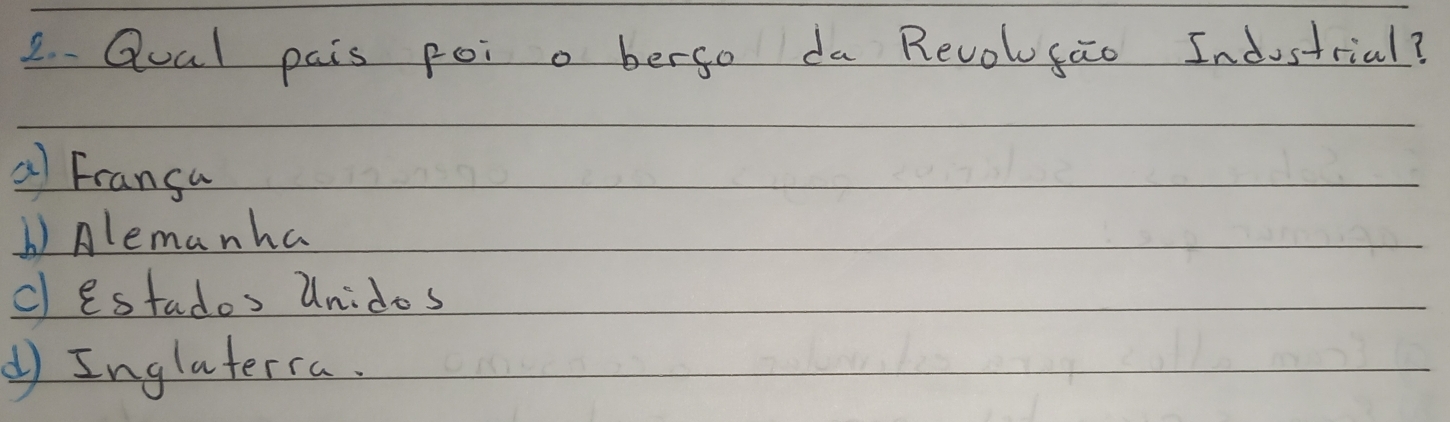 2.- Qual país foi o berço da Revolução Industrial?
a) França
b) Alemanha
c) Estados Unidos
d) Inglaterra.